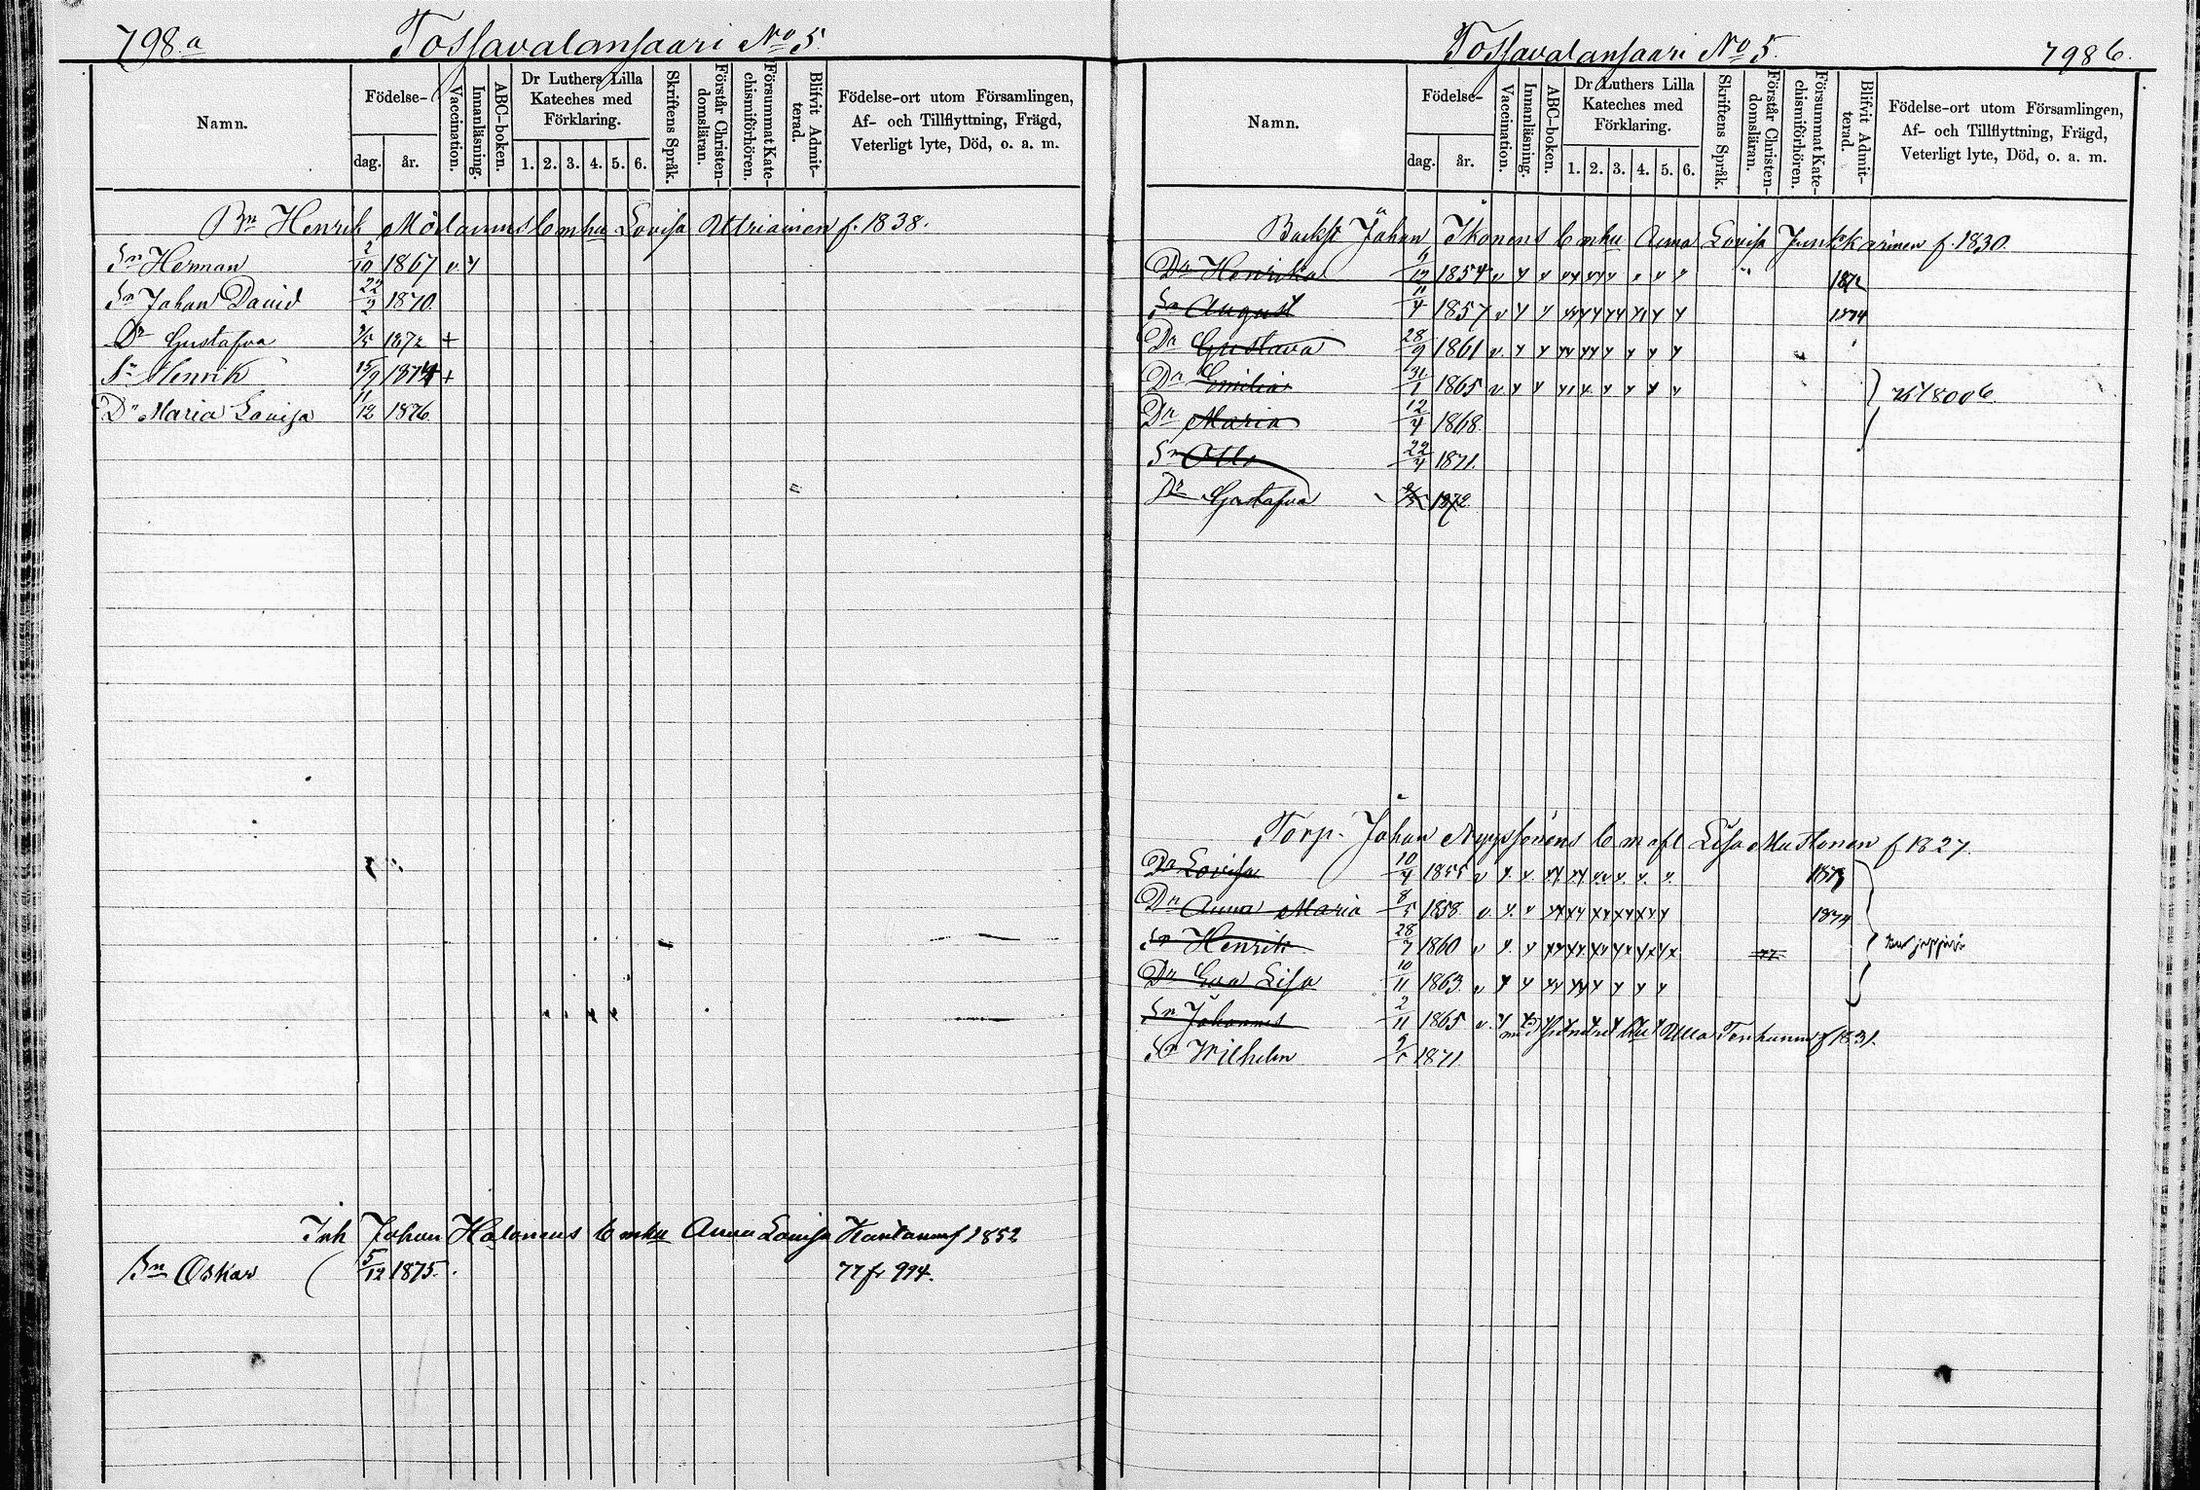 798.a Tossavalansaari No 5.
Namn.
Födelse-
dag. år.
Vaccination.
Innanläsning.
ABC-boken.
Dr Luthers Lilla Kateches med Förklaring.
1. 2. 3. 4. 5. 6.
Skriftens Språk.
Förstår Christen-domsläran.
Försummat Kate-chismiförhören.
Blifvit Admit-terad.
Födelse-ort utom Församlingen,
Af- och Tillflyttning, Frägd,
Veterligt lyte, Död, o. a. m.
Bn Henrik b m hu Lovisa f. 1838.
Sn Herman 2/10 1867 v y
Sn Johan David 22/2 1870.
Dr Gustafva 1872 +
Sn Henrik 15/9 1874 +
Dr Maria Lovisa 11/12 1876.
Inh Johan Halonens b m hu Anna Lovisa f 1852
Sn Oskar 5/12 1875. 77 fr 994.
Tossavalansaari No 5. 798 b.
Namn.
Födelse-
dag. år.
Vaccination.
Innanläsning.
ABC-boken.
Dr Luthers Lilla Kateches med Förklaring.
1. 2. 3. 4. 5. 6.
Skriftens Språk.
Förstår Christen-domsläran.
Försummat Kate-chismiförhören.
Blifvit Admit-terad.
Födelse-ort utom Församlingen,
Af- och Tillflyttning, Frägd,
Veterligt lyte, Död, o. a. m.
Backst Johan Ikonens b m hu Anna Lovisa f. 1830.
Dr Henrika 1854
Sn August 11/4 1857 1874
Dr Gustava 28/9 1861
Dr Emilia 31/1 1865 800 b
Dr Maria 12/4 1868
Sn Otto 22/4 1871.
Dr Gustafva 1872
Torp. Johan b m afl Lisa Mustonen f 1827.
Dr Lovisa 10/4 1855 1873
Dr Anna Maria 8/5 1858 1874
Sn Henrik 28/7 1860
Dr Eva Lisa 10/11 1863
Sn Johannes 2/11 1865
med hu Ulla Tenhunen f 1831.
Sn Wilhelm 9/5 1871.